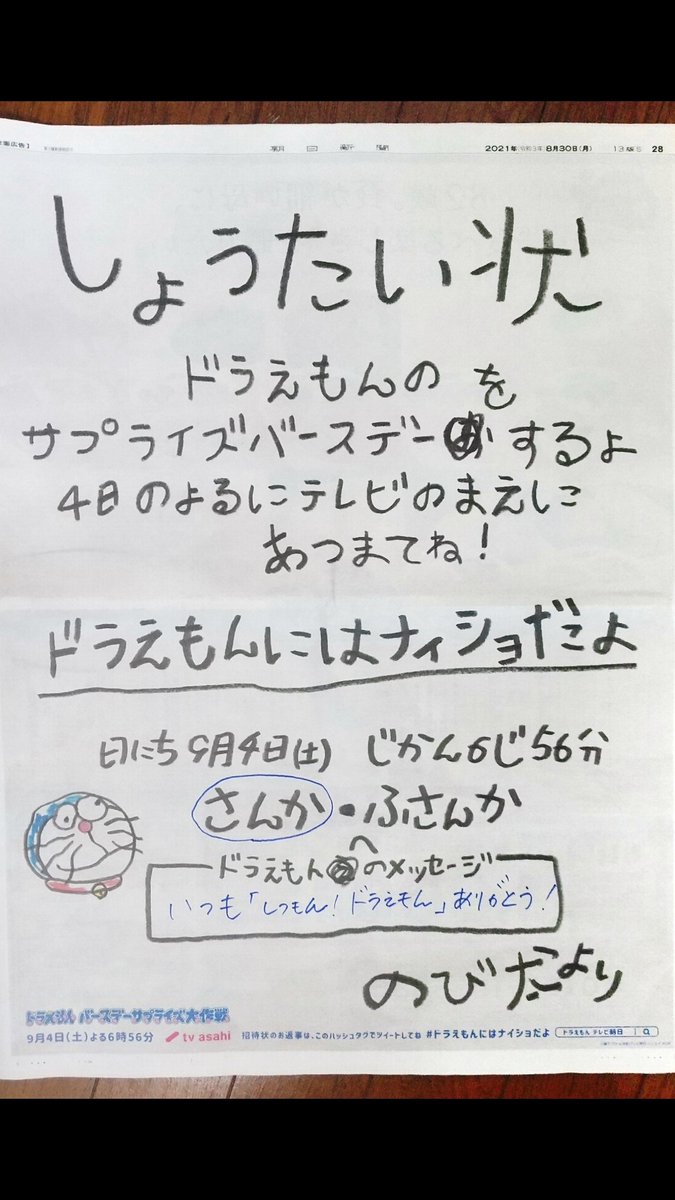 朝日新聞 2021年(令和3年)8月30日(月) 13版S 28
しょうたい状
ドラえもんの を
サプライズバースデー するよ
4日のよるにテレビのまえに
あつまてね!
ドラえもんにはナイショだよ
日にち9月4日(土) じかん6じ56分
さんか・ふさんか
ドラえもんへのメッセージ
いつも「しつもん!ドラえもん」ありがとう!
のびだより
ドラえもん バースデーサプライズ大作戦
9月4日(土)よる6時56分 tv asahi 招待状のお返事は、このハッシュタグでツイートしてね #ドラえもんにはナイショだよ ドラえもん テレビ朝日